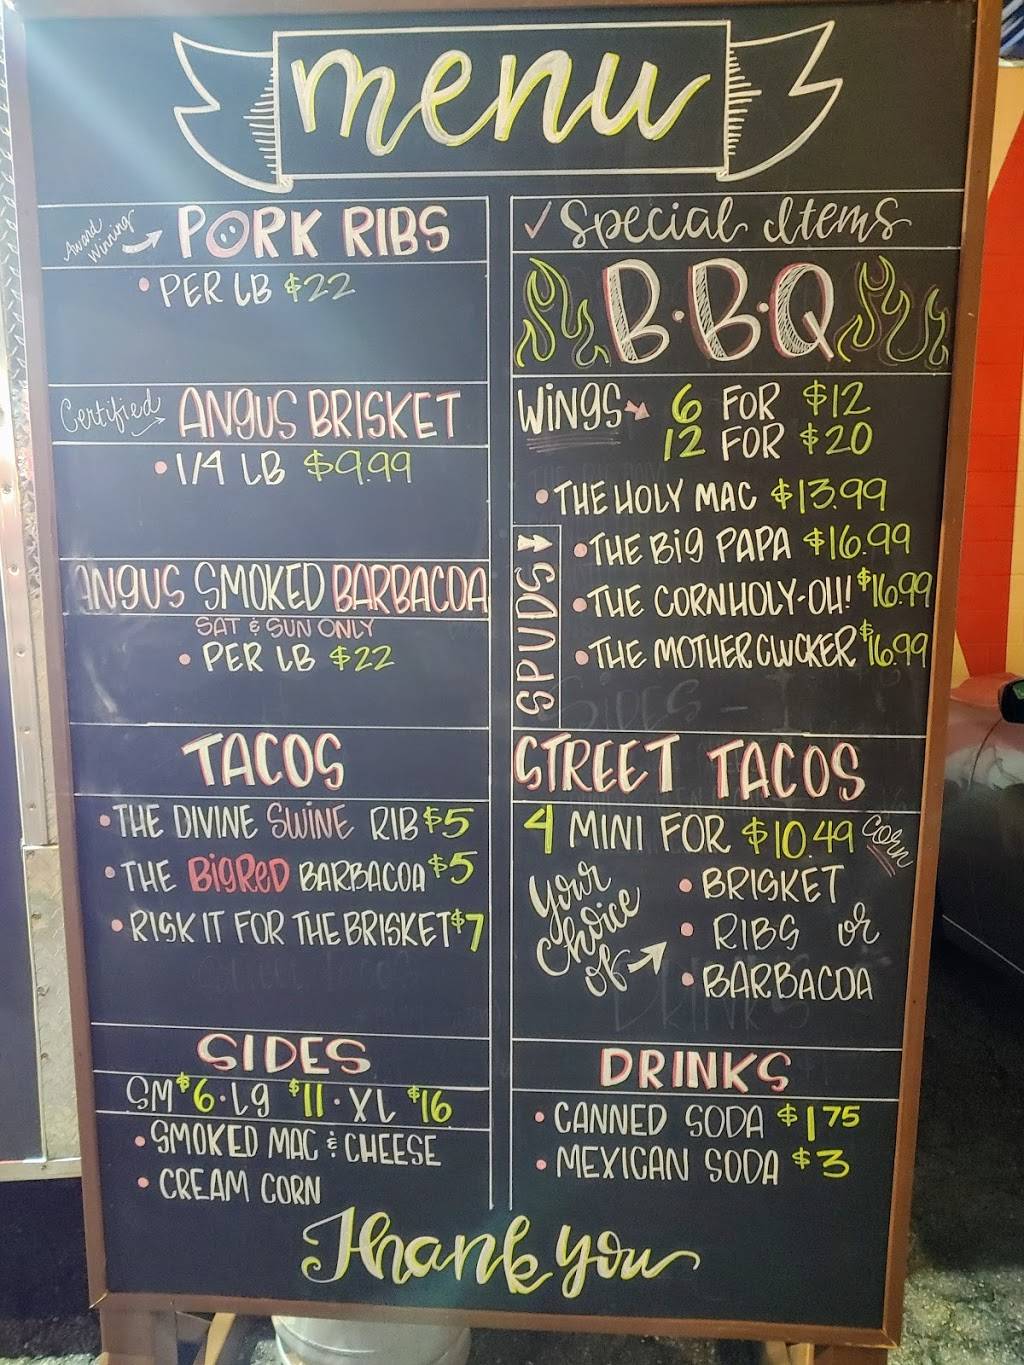 menu
Award Winning PORK RIBS
• PER LB $22
Certified ANGUS BRISKET
• 1/4 LB $9.99
ANGUS SMOKED BARBACOA
SAT & SUN ONLY
• PER LB $22
TACOS
• THE DIVINE SWINE RIB $5
• THE BIGRED BARBACOA $5
• RISK IT FOR THE BRISKET $7
SIDES
SM $6 · LG $11 · XL $16
• SMOKED MAC & CHEESE
• CREAM CORN
✓ Special Items
B·B·Q
WINGS → 6 FOR $12
12 FOR $20
• THE HOLY MAC $13.99
SPUDS
• THE BIG PAPA $16.99
• THE CORNHOLY-OH! $16.99
• THE MOTHER CLUCKER $16.99
STREET TACOS
4 MINI FOR $10.49 Corn
Your choice of →
• BRISKET
• RIBS or
• BARBACOA
DRINKS
• CANNED SODA $1.75
• MEXICAN SODA $3
Thank you